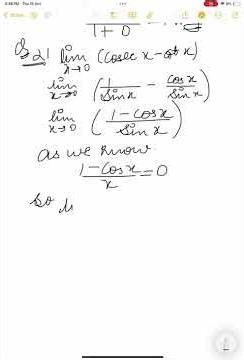 1+0
Q 21 lim x→0 (cosec x - cot x)
lim x→0 (1/sin x - cos x/sin x)
lim x→0 (1-cos x/sin x)
as we know
1-cos x/x = 0
So